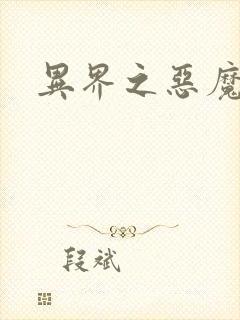 異界之惡魔
段斌